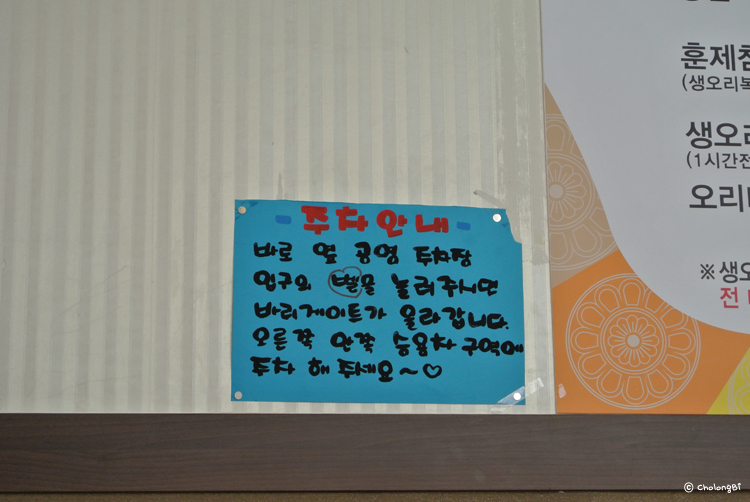 - 주차안내 -
바로 옆 공영 주차장
입구의 벨을 눌러주시면
바리게이트가 올라갑니다.
오른쪽 안쪽 승용차 구역에
주차 해 주세요~♡
훈제
(생오리
생오리
(1시간전
오리
※생오
전
© CholongBi